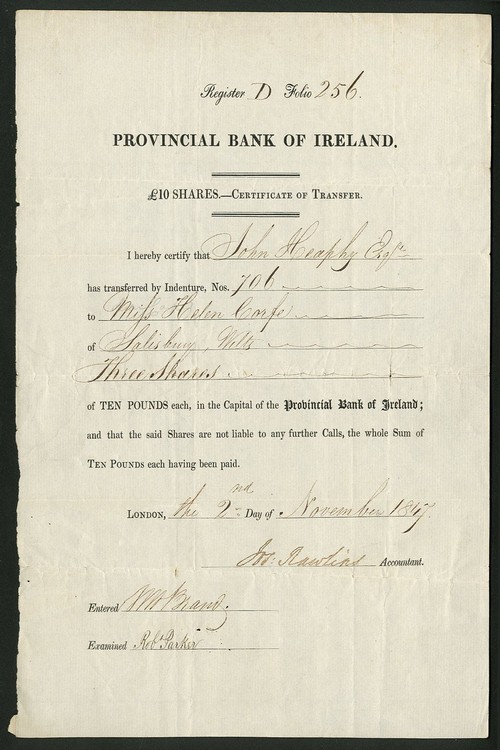 Register D Folio 256.
PROVINCIAL BANK OF IRELAND.
£10 SHARES.—CERTIFICATE OF TRANSFER.
I hereby certify that John Heaphy Esqr
has transferred by Indenture, Nos. 706
to Miss Helen Corfe
of Salisbury, Wilts
Three Shares
of TEN POUNDS each, in the Capital of the Provincial Bank of Ireland;
and that the said Shares are not liable to any further Calls, the whole Sum of
TEN POUNDS each having been paid.
LONDON, the 2nd Day of November 1847.
Jos: Rawlins Accountant.
Entered Wm Brand
Examined Robt Parker